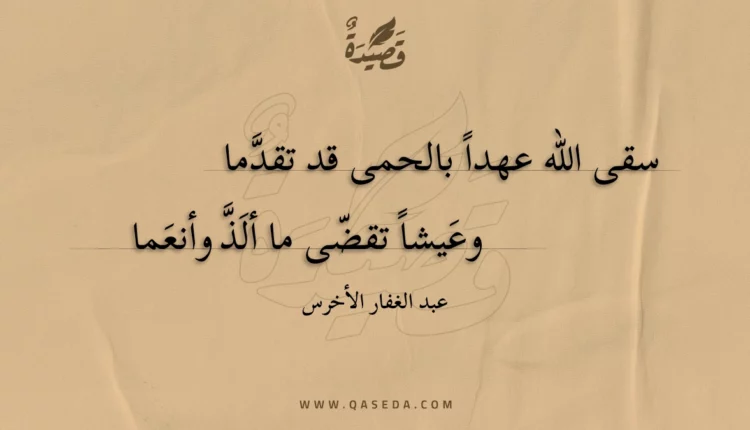 قَصِيْدَةٌ
سقى الله عهداً بالحمى قد تقدَّما
وعَيشاً تقضّى ما ألَذَّ وأنعَما
عبد الغفار الأخرس
WWW.QASEDA.COM